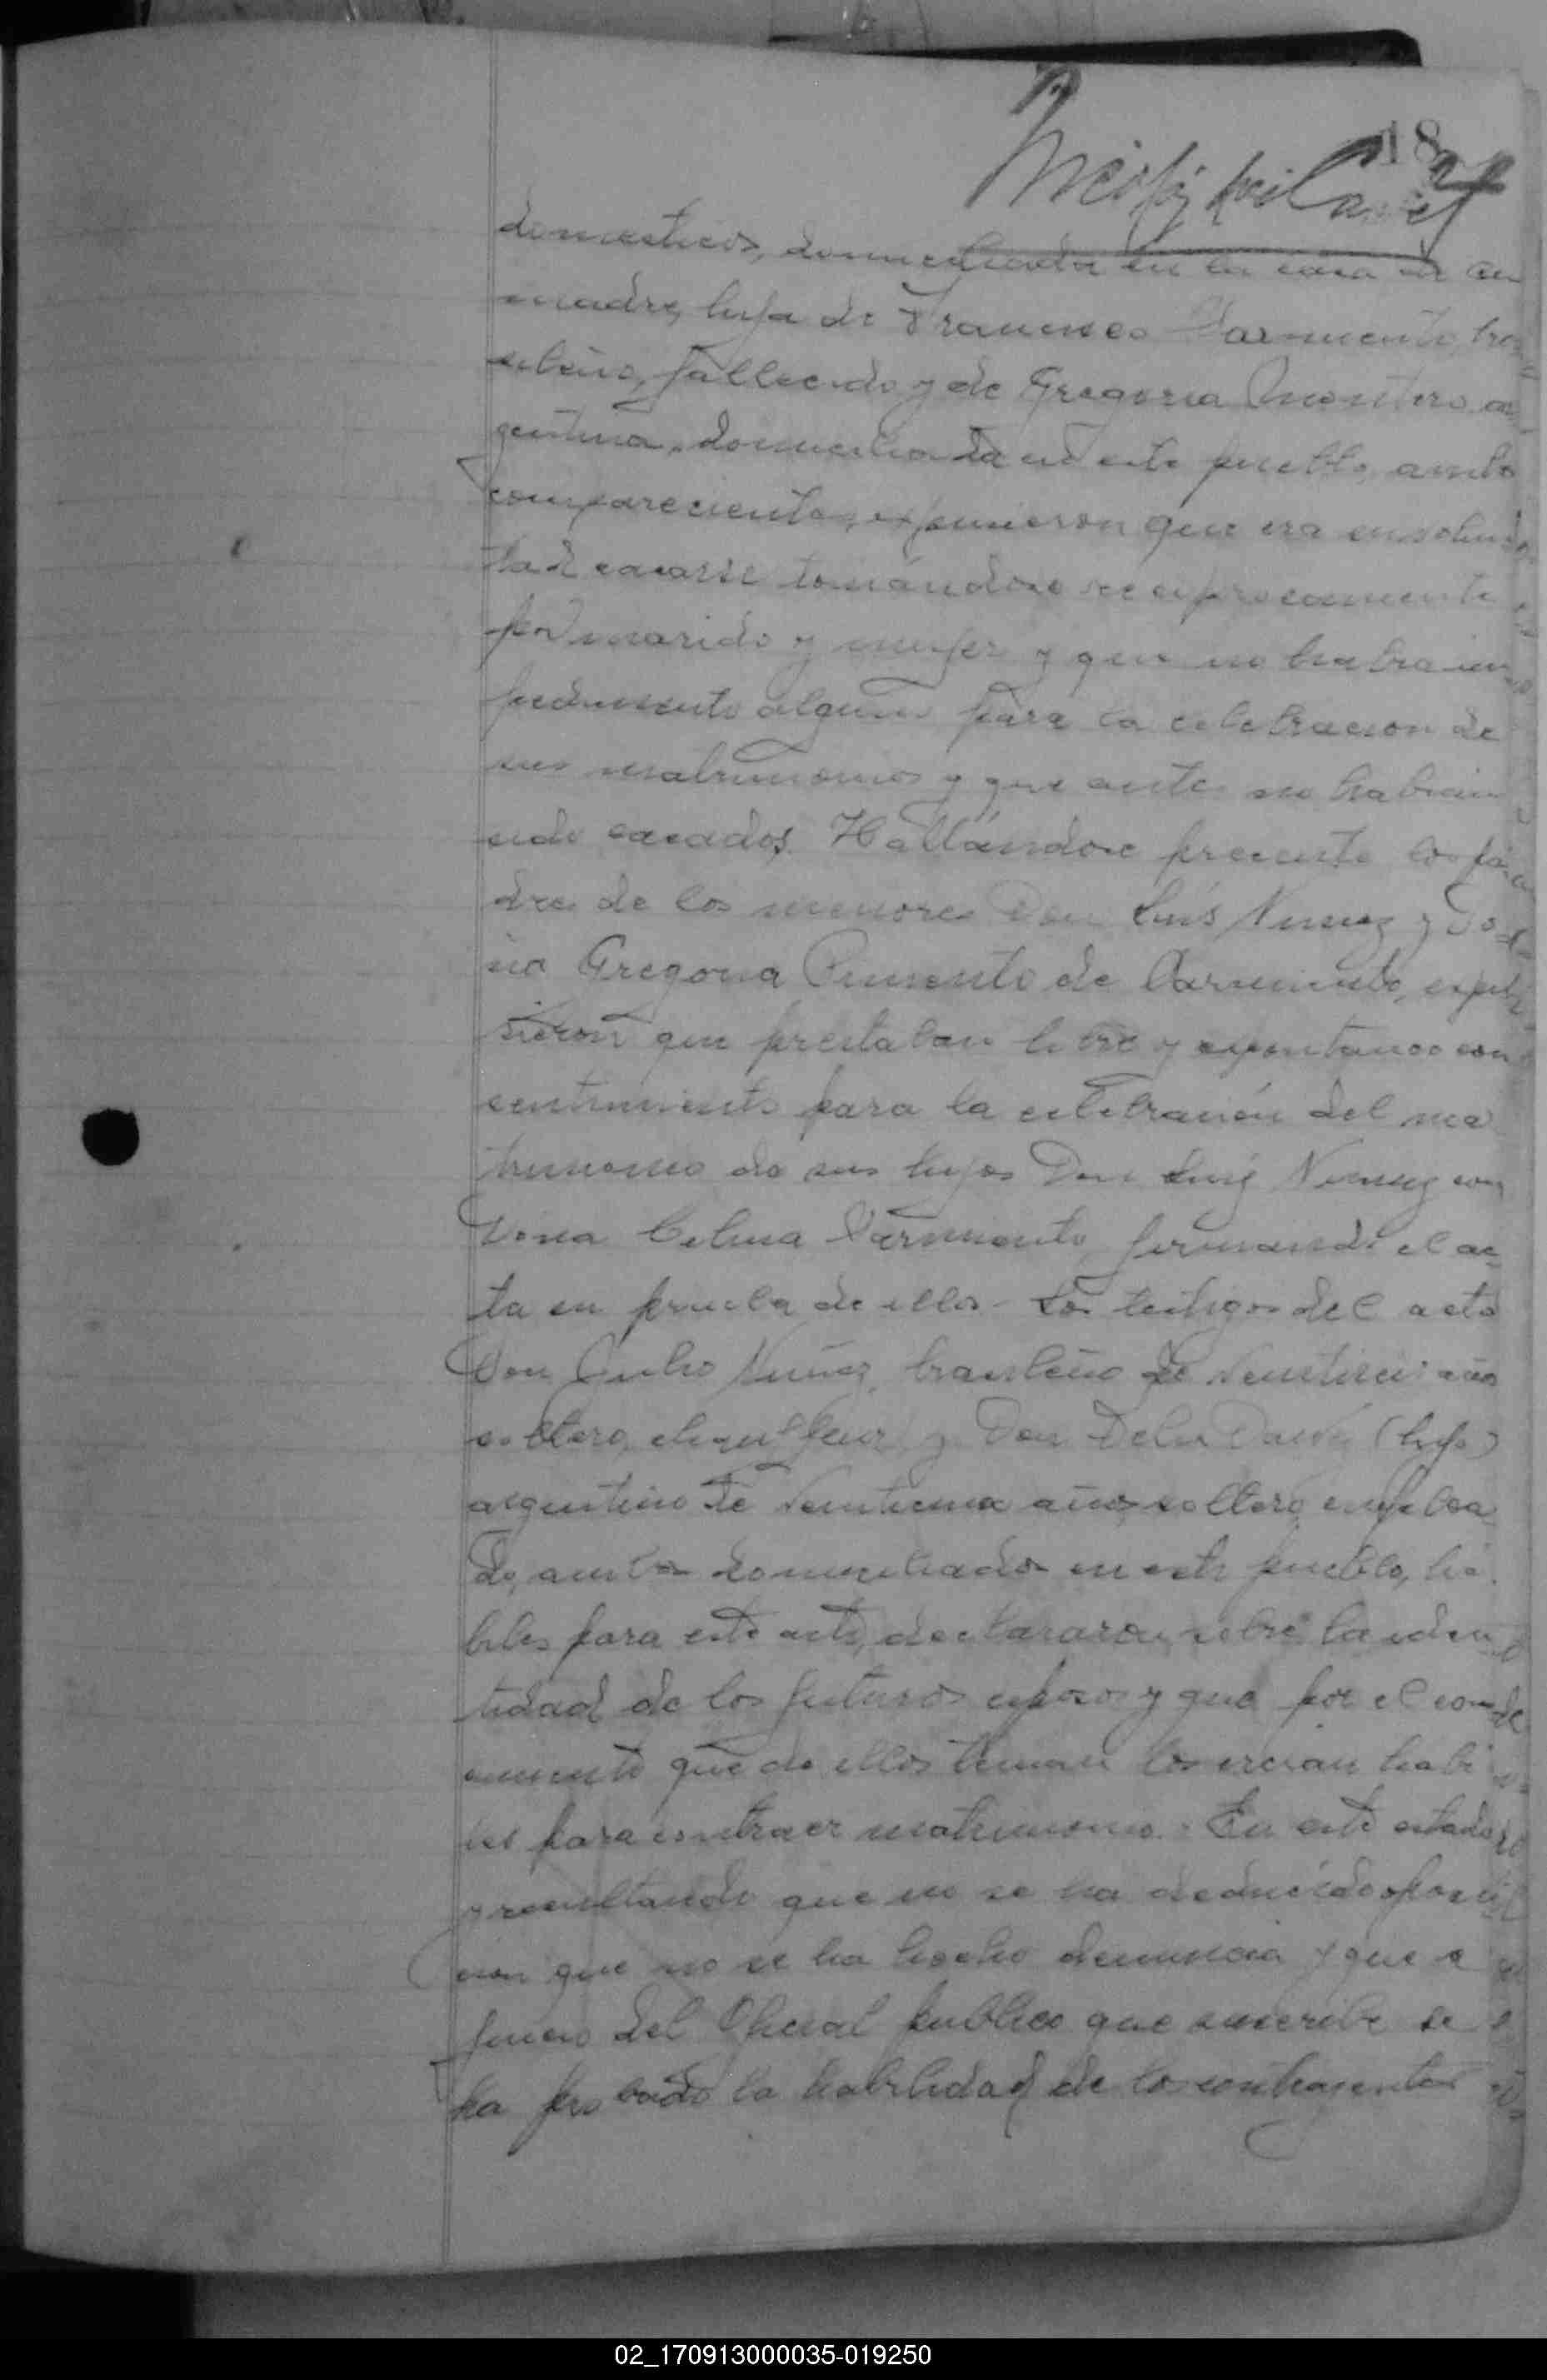 18
domesticos, domiciliada en la casa de su
madre, hija de Francisco Sarmiento, bra
sileño, fallecido y de Gregoria Montero ar
gentina, domiciliada en este pueblo, ambos
comparecientes, expusieron que era su volun
tad casarse tomándose reciprocamente
por marido y mujer y que no habia im
pedimento alguno para la celebracion de
su matrimonio y que antes no habian
sido casados. Hallándose presente los pa
dres de los menores Don Luis Nunez y Do
ña Gregoria de Sarmiento, expu
sieron que prestaban libre y espontaneo con
sentimiento para la celebración del ma
trimonio de sus hijos Don Luis Nunez con
Dona Celina Sarmiento, firmando el ac
ta en prueba de ello - Los testigos del acto
Don Julio Nuñez, brasileño de años
soltero, chauffeur y Don (hijo)
argentino de años soltero, emplea
do, ambos domiciliados en este pueblo, há
biles para este acto, declararon sobre la iden
tidad de los futuros esposos y que por el cono
cimiento que de ellos tenian los creian habi
les para contraer matrimonio. En este estado
y resultando que no se ha deducido oposi
cion que no se ha hecho denuncia y que a
juicio del Oficial publico que suscribe se
ha probado la habilidad de los contrayentes
02_170913000035-019250